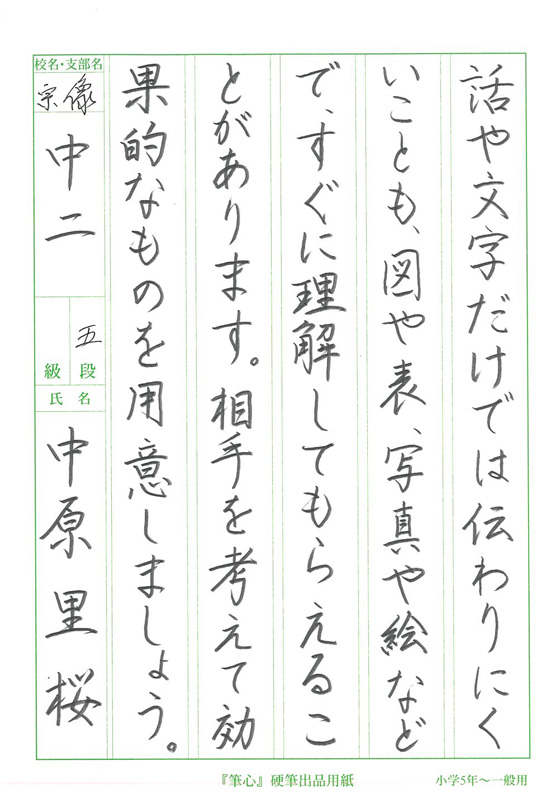 話や文字だけでは伝わりにく
いことも、図や表、写真や絵など
で、すぐに理解してもらえるこ
とがあります。相手を考えて効
果的なものを用意しましょう。
校名・支部名
宗像
中二
五
級 段
氏 名
中原里桜
『筆心』硬筆出品用紙
小学5年〜一般用